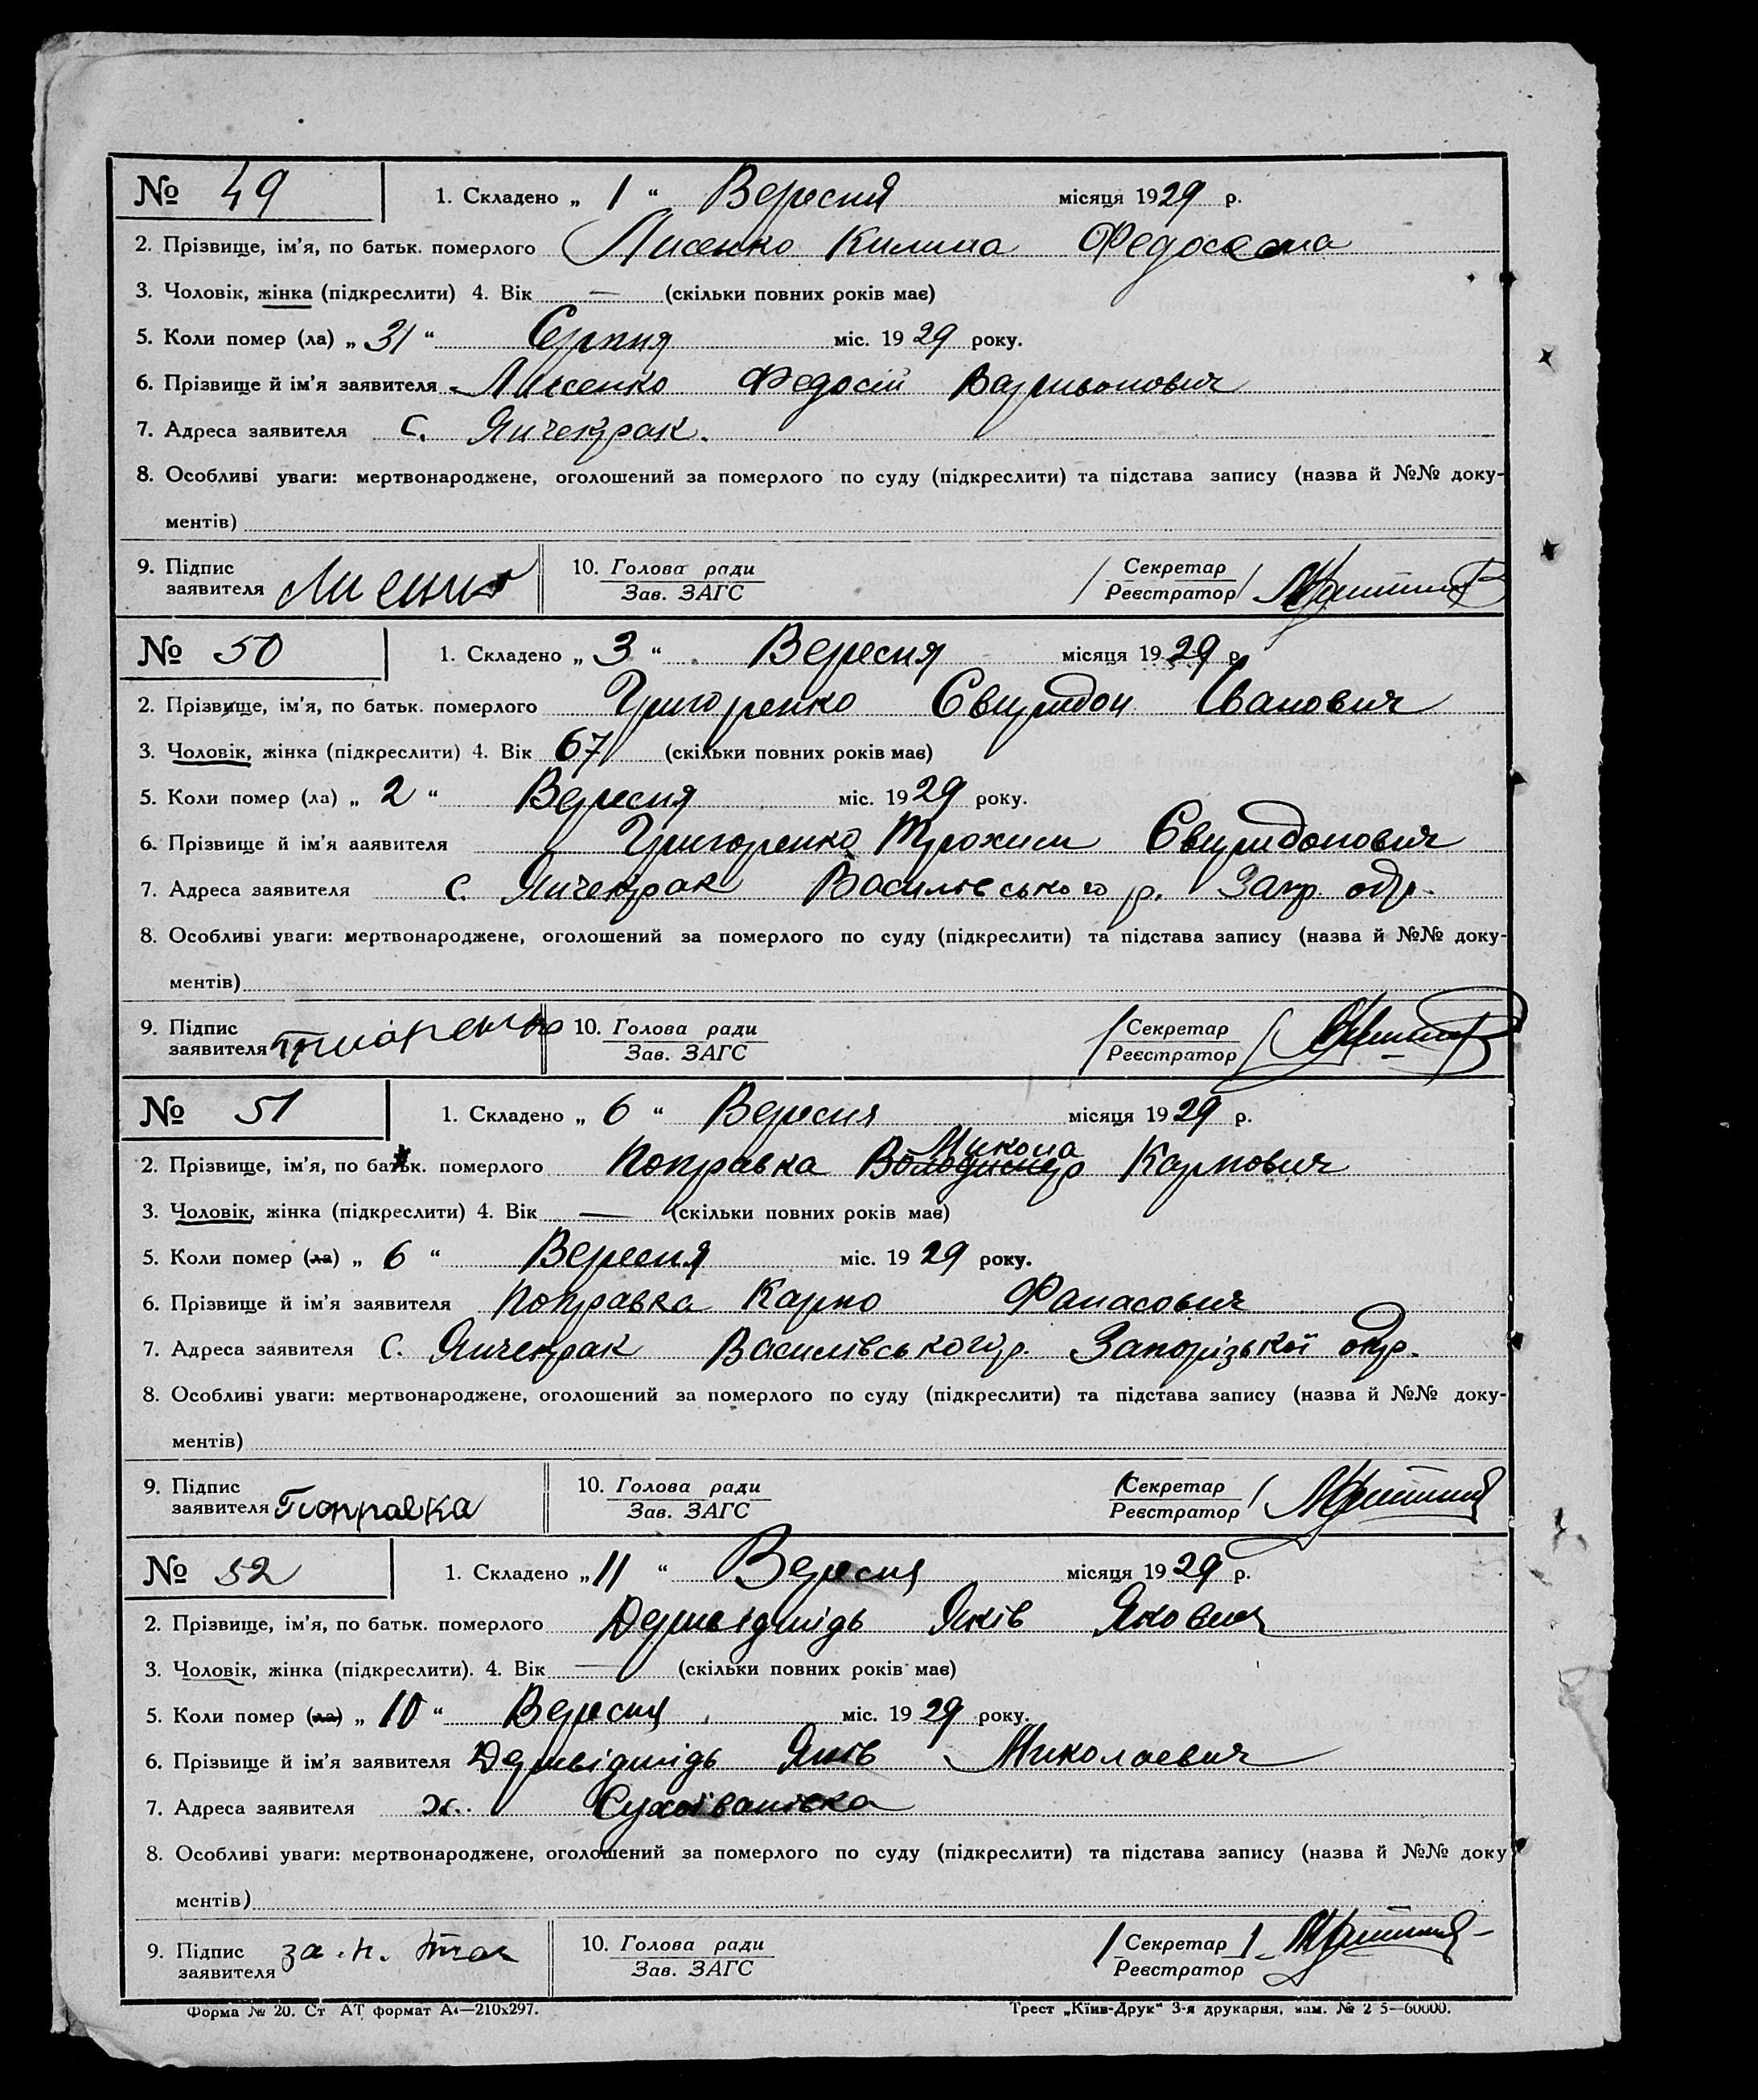 № 49 1. Складено „ 1 “ Вересня місяця 1929 р.
2. Прізвище, ім'я, по батьк. померлого Лисенко Килина Федосеєвна
3. Чоловік, жінка (підкреслити) 4. Вік — (скільки повних років має)
5. Коли помер (ла) „ 31 “ Серпня міс. 1929 року.
6. Прізвище й ім'я заявителя Лисенко Федосій Вармьонович
7. Адреса заявителя с. Янчекрак.
8. Особливі уваги: мертвонароджене, оголошений за померлого по суду (підкреслити) та підстава запису (назва й №№ доку-
ментів)
9. Підпис заявителя Лисенко 10. Голова ради Зав. ЗАГС / Секретар Реєстратор /
№ 50 1. Складено „ 3 “ Вересня місяця 1929 р.
2. Прізвище, ім'я, по батьк. померлого Григоренко Свиридон Іванович
3. Чоловік, жінка (підкреслити) 4. Вік 67 (скільки повних років має)
5. Коли помер (ла) „ 2 “ Вересня міс. 1929 року.
6. Прізвище й ім'я ааявителя Григоренко Трохим Свиридонович
7. Адреса заявителя с. Янчекрак Василівського р. Запр. окр.
8. Особливі уваги: мертвонароджене, оголошений за померлого по суду (підкреслити) та підстава запису (назва й №№ доку-
ментів)
9. Підпис заявителя 10. Голова ради Зав. ЗАГС / Секретар Реєстратор /
№ 51 1. Складено „ 6 “ Вересня місяця 1929 р.
Микола
2. Прізвище, ім'я, по батьк. померлого Поправка Володимир Карпович
3. Чоловік, жінка (підкреслити) 4. Вік — (скільки повних років має)
5. Коли помер (ла) „ 6 “ Вересня міс. 1929 року.
6. Прізвище й ім'я заявителя Поправка Карпо Фанасович
7. Адреса заявителя С. Янчекрак Василівського р. Запорізької окр.
8. Особливі уваги: мертвонароджене, оголошений за померлого по суду (підкреслити) та підстава запису (назва й №№ доку-
ментів)
9. Підпис заявителя Поправка 10. Голова ради Зав. ЗАГС / Секретар Реєстратор /
№ 52 1. Складено „ 11 “ Вересня місяця 1929 р.
2. Прізвище, ім'я, по батьк. померлого Дермвідмідь Яків Якович
3. Чоловік, жінка (підкреслити). 4. Вік — (скільки повних років має)
5. Коли помер (ла) „ 10 “ Вересня міс. 1929 року.
6. Прізвище й ім'я заявителя Дермвідмідь Яків Миколаевич
7. Адреса заявителя х. Сухоіванівка
8. Особливі уваги: мертвонароджене, оголошений за померлого по суду (підкреслити) та підстава запису (назва й №№ доку
ментів)
9. Підпис заявителя за. н. 10. Голова ради Зав. ЗАГС / Секретар Реєстратор /
Форма № 20. Ст АТ формат А4—210х297. Трест „Київ-Друк“ 3-я друкарня, зам. № 2 5—60000.